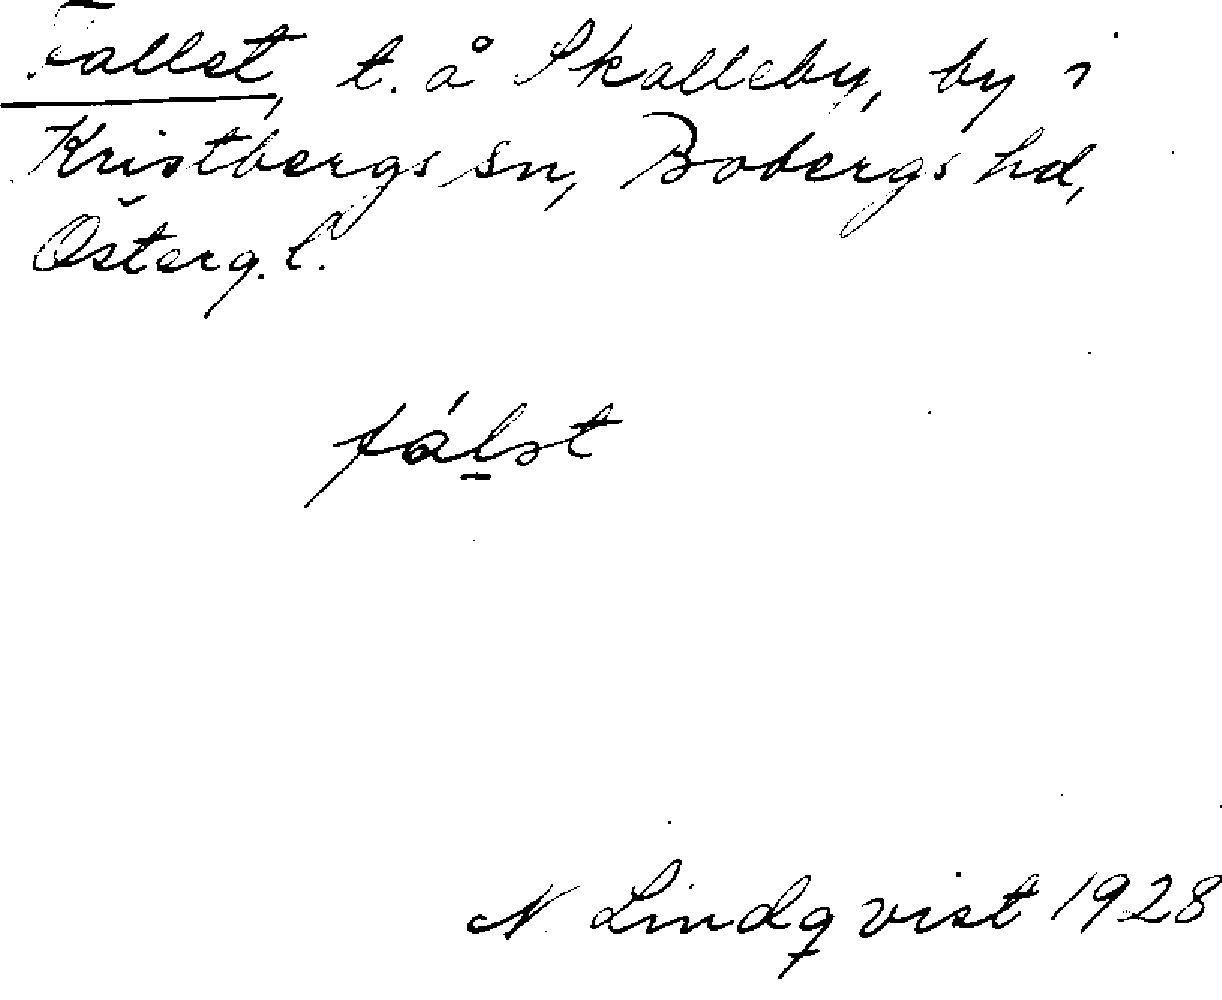 Fallet, t. å Skalleby, by i
Kristbergs sn, Bobergs hd,
Österg. l.
fál̲ət
N. Lindqvist 1928